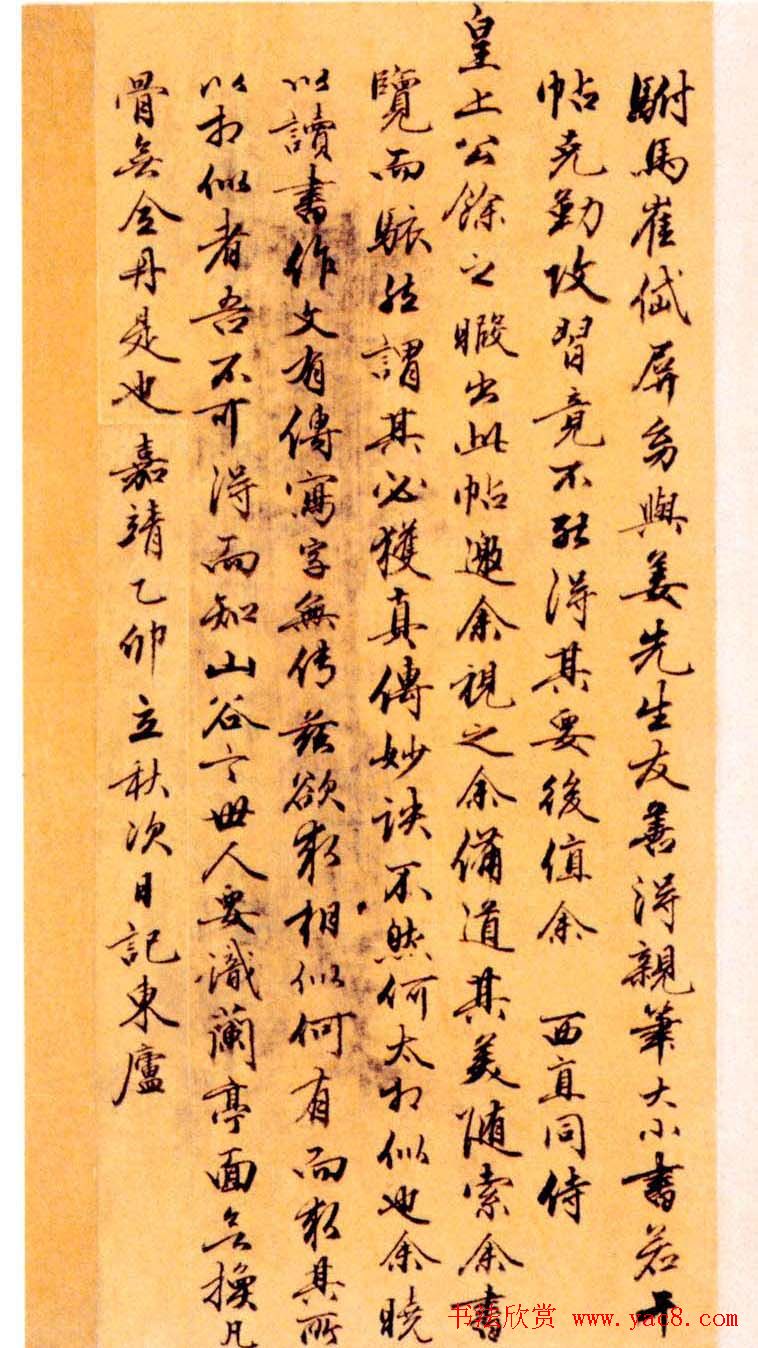 駙馬崔岱屏爲與姜先生友善得親筆大小書若干
帖克勤攻習竟不能得其要後值余 西直同侍
皇上公餘之暇出此帖邀余視之余備道其美隨索余書
覽而駭然謂其必獲真傳妙訣不然何太相似也余曉
以讀書作文有傳寫字無传茲欲求相似何有而求其所
以相似者吾不可得而知山谷云世人要識蘭亭面無換凡
骨無金丹是也 嘉靖乙卯立秋次日記東廬
书法欣赏 www.yac8.com